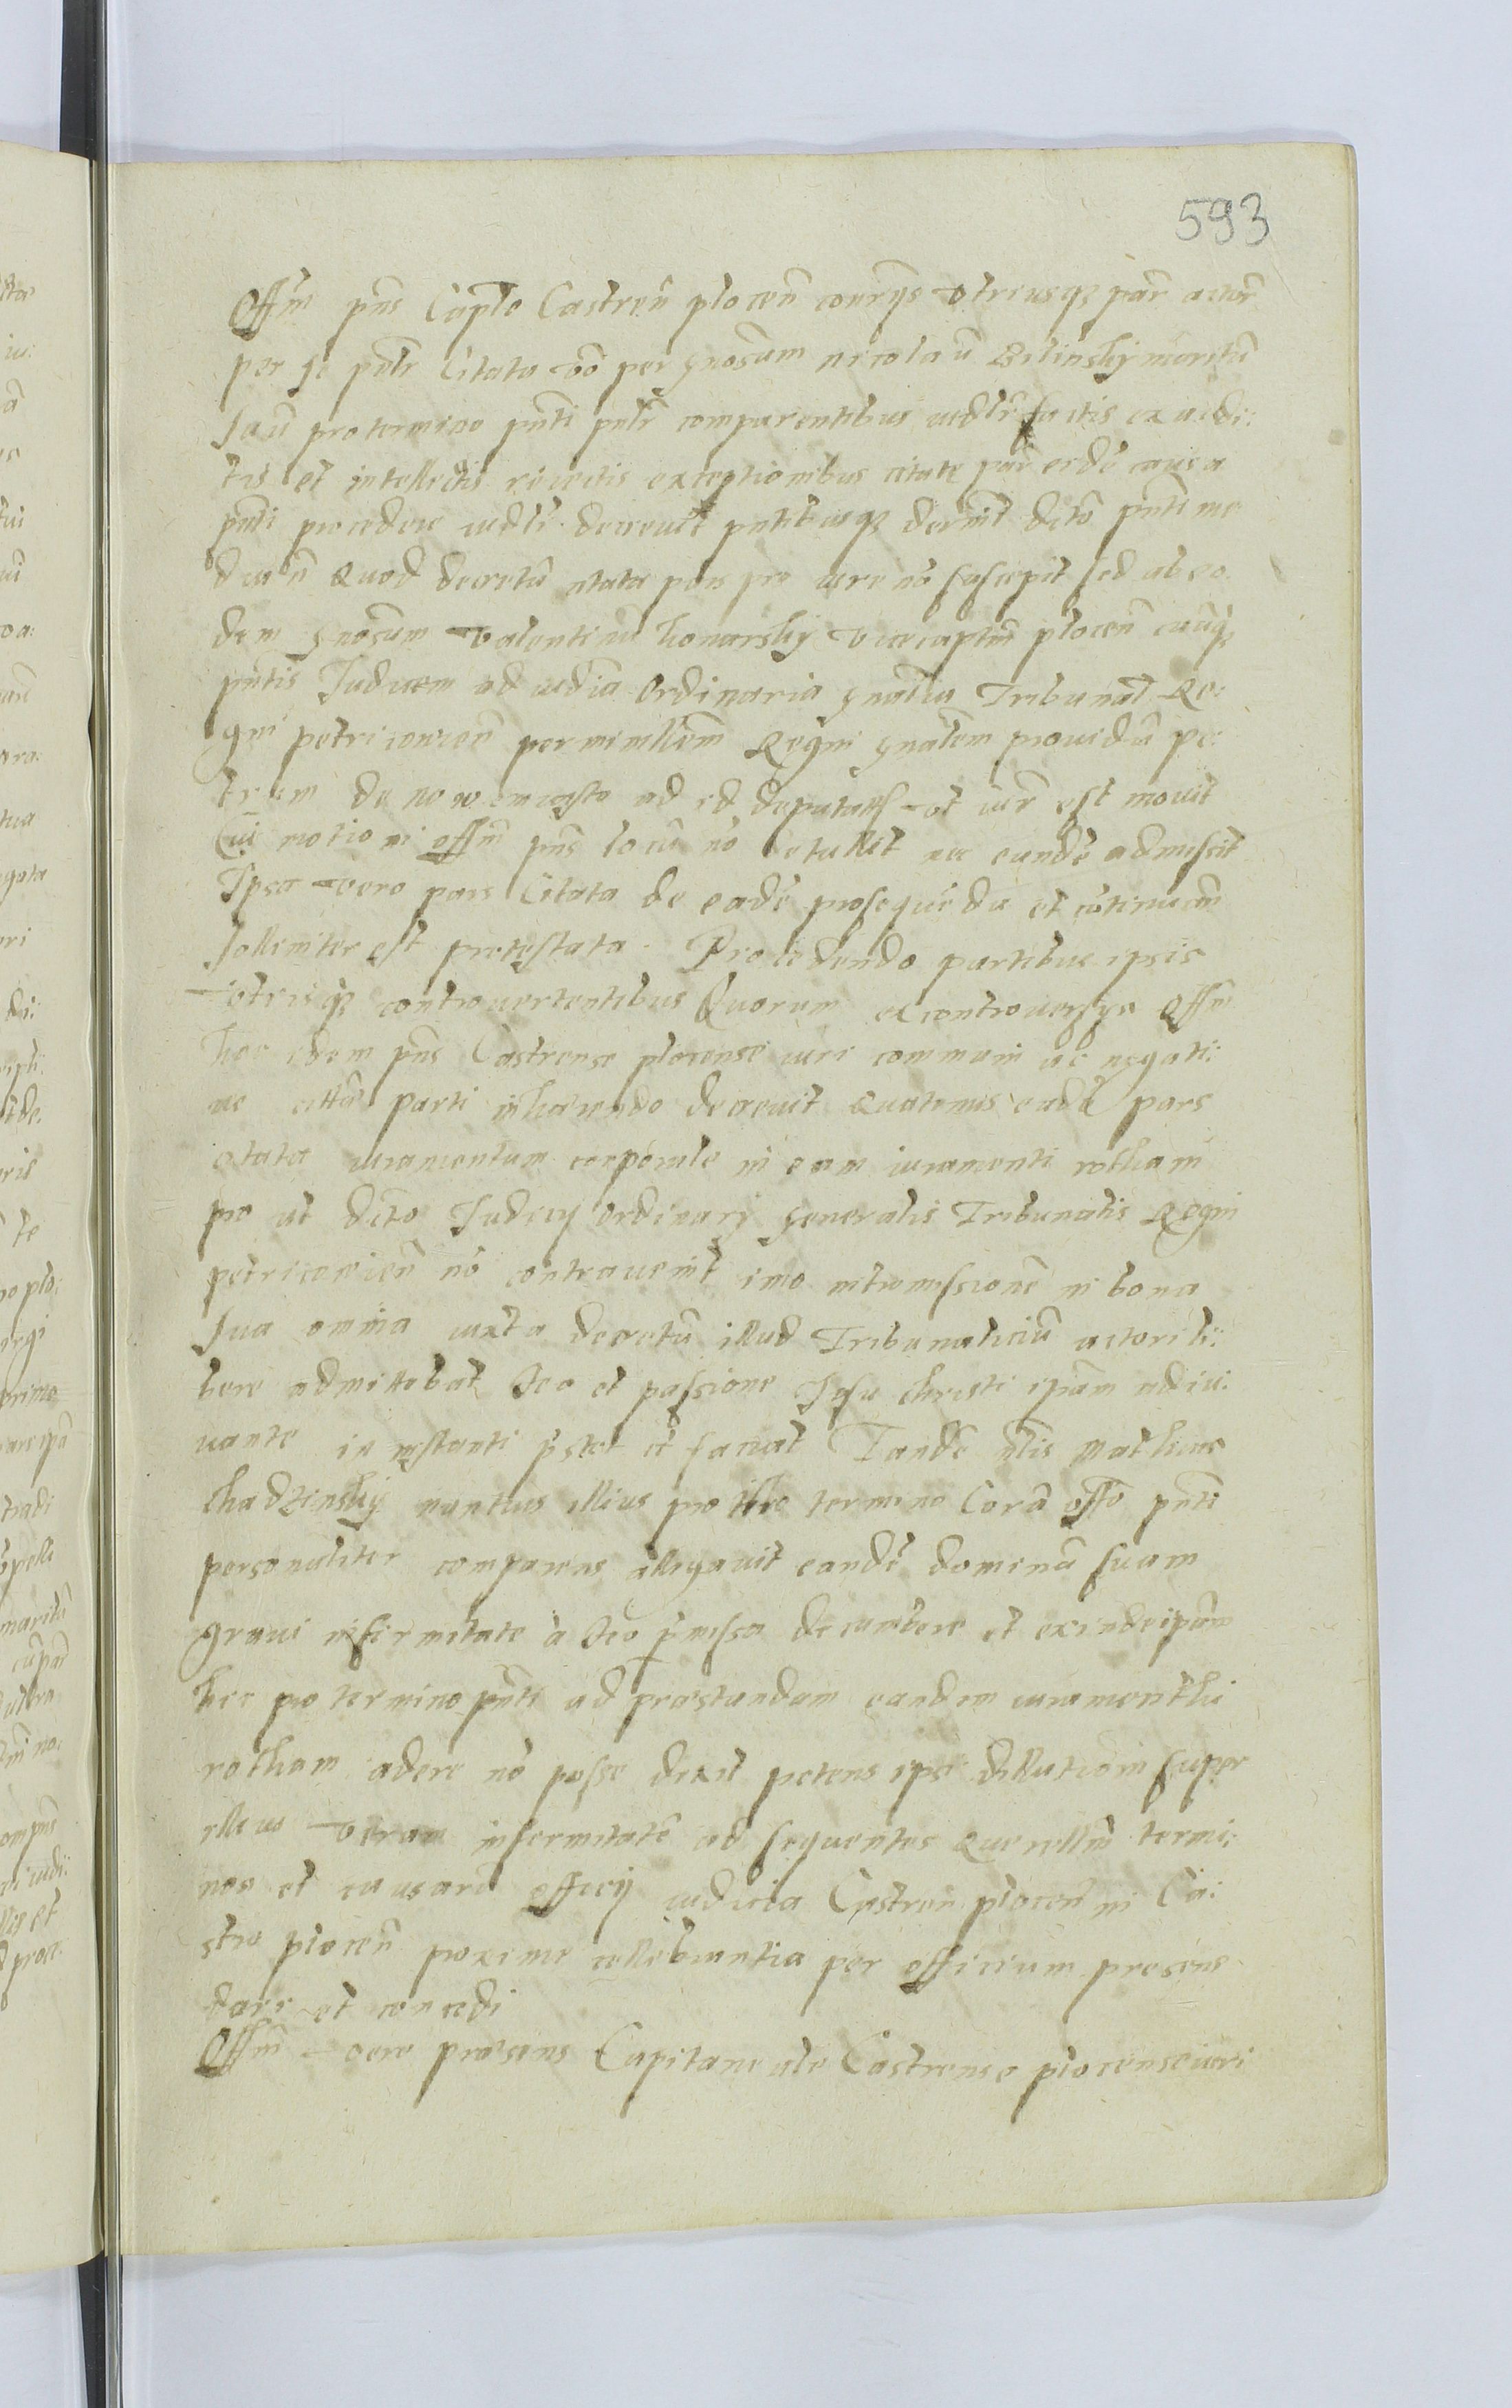 593
Offm̃ pñs Captło Castreñ plocen̄ conr̃ijs vtriusq̨ par̃ actor̃
per se pñlr̃ Citata vō per gñosum nicolaū Bilinskij maritū
suū pro termino pñti pñlr̃ comparentibus iudlr̃ factis exaudi:
tis et intellectis reiectis exceptionibus citate par̃ eidē causa
pñti procedere iudlr̃ decreuit pntibusq̨ dcto pñti me
dian̄ Quod decretū citata pars pro iure nō suscepit sed ab eo
dem gñosum valentinū konarskij vicecaptm̃ plocen̄
pñtis Judicem ad iudicia Ordinaria gñalia Tribunal̃ Re:
gni petricouien̄ per ministm̄ Regni gñalem prouidū pe:
trum de nowemiasto ad id deputatū vt iur̃ est mouit
Cui motioni offm̃ pñs locū nō detulit nec eundē admisit
Ipsa vero pars Citata de eadē prosequēda et cōtinuan̄
sollenniter est protestata. Procedendo partibus ipsis
vtrisq̨ controuertentibus Quorum ex controuersijs Offm̃
hoc idem pñs Castrense plocense iuri communi ac negati:
ue parti inhærendo decreuit Quatenus eadē pars
citata iuramentum corporale in eam iuramenti rotham
pro ut dcto Judicij Ordinarij generalis Tribunalis Regni
petricouien̄ nō contrauenit imo intromissionē in bona
sua omnia iuxta decretū illud Tribunaliciū actori li:
bere admittebat Deo et passione Jesu Christi ipsam adiu:
uante in instanti p̄stet et faciat Tandē nblis Mathias
Chadzinskij nuntius illius pro isto termino Corā offo pñti
personaliter comparens allegauit eandē dominā suam
graui infirmitate à Deo p̄missa decumbere et exinde ipsam
hic pro termino pñti ad præstandam eandem iuramenti
rotham adere nō posse dixit petens ipsi dillationem super
illius veram infirmitatē ad sequentes Querellm̃ termi:
nos et causarū officij iudicia Castren̄ plocen̄ in Ca:
stro plocen̄ proxime cellebrantia per officium presens
dari et concedi
Offm̃ vero præsens Capitaneale Castrense plocense iuri